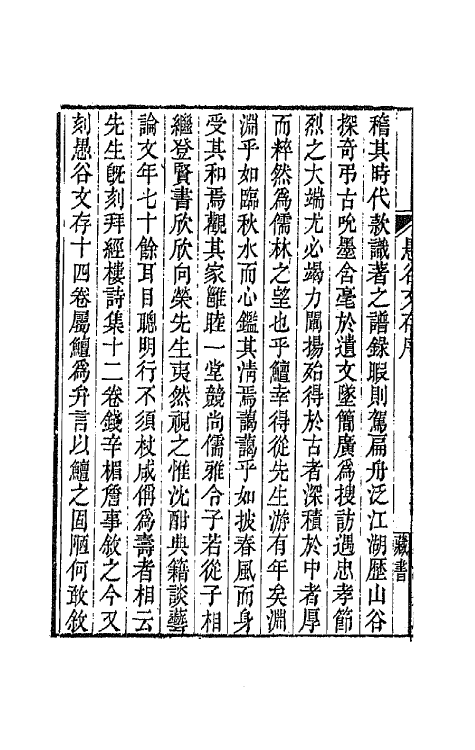 愚谷文存序
藏書
稽其時代款識著之譜錄暇則駕扁舟泛江湖歷山谷
探奇弔古吮墨含毫於遺文墜簡廣爲搜訪遇忠孝節
烈之大端尤必竭力闡揚殆得於古者深積於中者厚
而粹然爲儒林之望也乎鱣幸得從先生游有年矣淵
淵乎如臨秋水而心鑑其淸焉藹藹乎如披春風而身
受其和焉觀其家雝睦一堂競尚儒雅令子若從子相
繼登賢書欣欣向榮先生夷然視之惟沈酣典籍談藝
論文年七十餘耳目聰明行不須杖咸稱爲壽者相云
先生旣刻拜經樓詩集十二卷錢辛楣詹事敘之今又
刻愚谷文存十四卷屬鱣爲弁言以鱣之固陋何敢敘